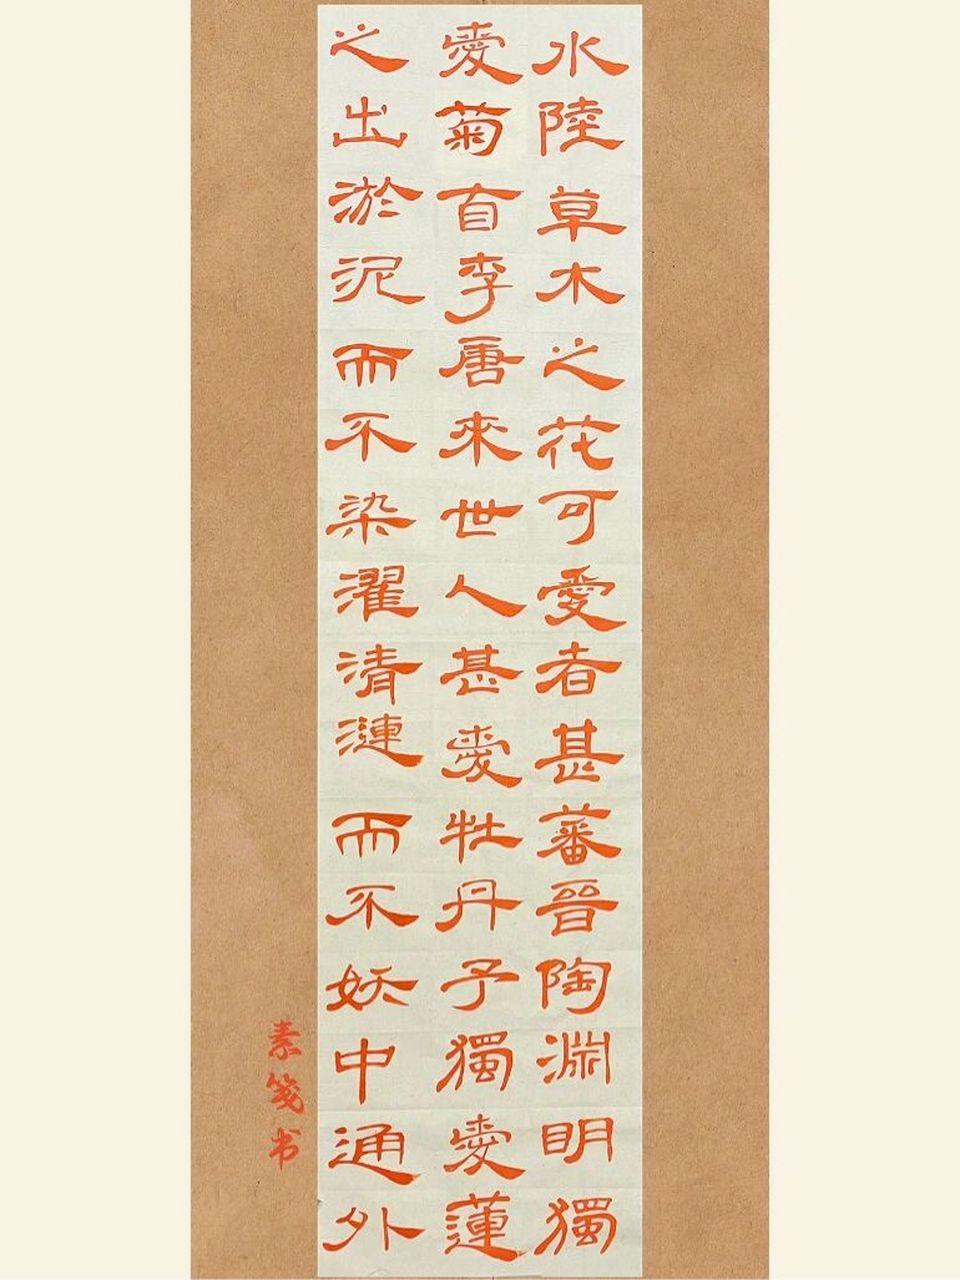 水陸草木之花可愛者甚蕃晉陶淵明獨
愛菊自李唐來世人甚愛牡丹予獨愛蓮
之出淤泥而不染濯清漣而不妖中通外
素笺书